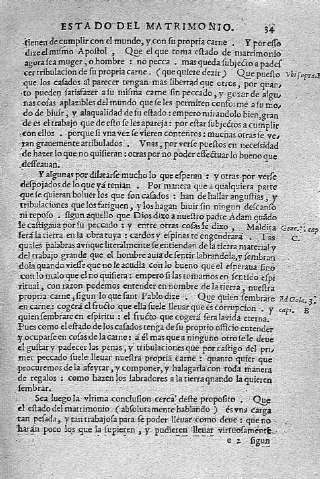 ESTADO DEL MATRIMONIO. 34
tienen de cumplir con el mundo, y con su propria carne. Y por esso
dize el mismo Apostol, Que el que toma estado de matrimonio
agora sea muger, o hombre: no pecca. mas queda subjecto a padecer
tribulacion de su propria carne. (que quiere dezir) Que puesto
que los casados al parecer tengan mas libertad que otros, por quanto
pueden satisfazer a su misma carne sin peccado, y gozar de algunas
cosas aplazibles del mundo que se les permiten conforme a su modo
de biuir, y a la qualidad de su estado: empero mirandolo bien, grande
es el trabajo que de esto se les apareja: por estar subjectos a cumplir
con ellos. porque si vna vez se vieren contentos: muchas otras se veran
grauemente atribulados. Vnas, por verse puestos en necessidad
de hazer lo que no quisieran: otras por no poder effectuar lo bueno que
desseauan.
Y algunas por dilatarse mucho lo que esperan: y otras por verse
despojados de lo que ya tenian. Por manera que a qualquiera parte
que se quieran boluer los que son casados: han de hallar angustias, y
tribulaciones que los fatiguen, y los hagan biuir sin ningun descanso
ni reposo. segun aquello que Dios dixo a nuestro padre Adam quando
le castigaua por su peccado: y entre otras cosas le dixo, Maldita
sera la tierra en tu obra cuya: cardos y espinas te engendrara. Las
quales palabras aunque literalmente se entiendan de la tierra material y
del trabajo grande que el hombre auia de sentir labrandola, y sembrandola
quando viesse que no le acudia con lo bueno que el esperaua sino
con lo malo que el no quisiera: empero si las tomamos en sentido espiritual,
con razon podemos entender en nombre de la tierra, nuestra
propria carne, segun lo que sant Pablo dize. Que quien sembrare
en carne: cogera el fructo que ella suele lleuar que es corrupcion. y
quien sembrare en espiritu: el fructo que cogera sera la vida eterna.
Pues como el estado de los casados tenga de su proprio officio entender
y ocuparse en cosas de la carne: a el mas que a ninguno otro se le deue
el gustar y padecer las penas, y tribulaciones que por castigo del primer
peccado suele lleuar nuestra propria carne: quanto quier que
procuremos de la afeytar, y componer, y halagarla con toda manera
de regalos: como hazen los labradores a la tierra quando la quieren
sembrar.
Sea luego la vltima conclusion cerca deste proposito. Que
el estado del matrimonio (absolutamente hablando) es vna carga
tan pesada, y tan trabajosa para se poder lleuar como deue: que no
haran poco los que la supieren, y pudieren lleuar virtuosamente.
e 2 segun